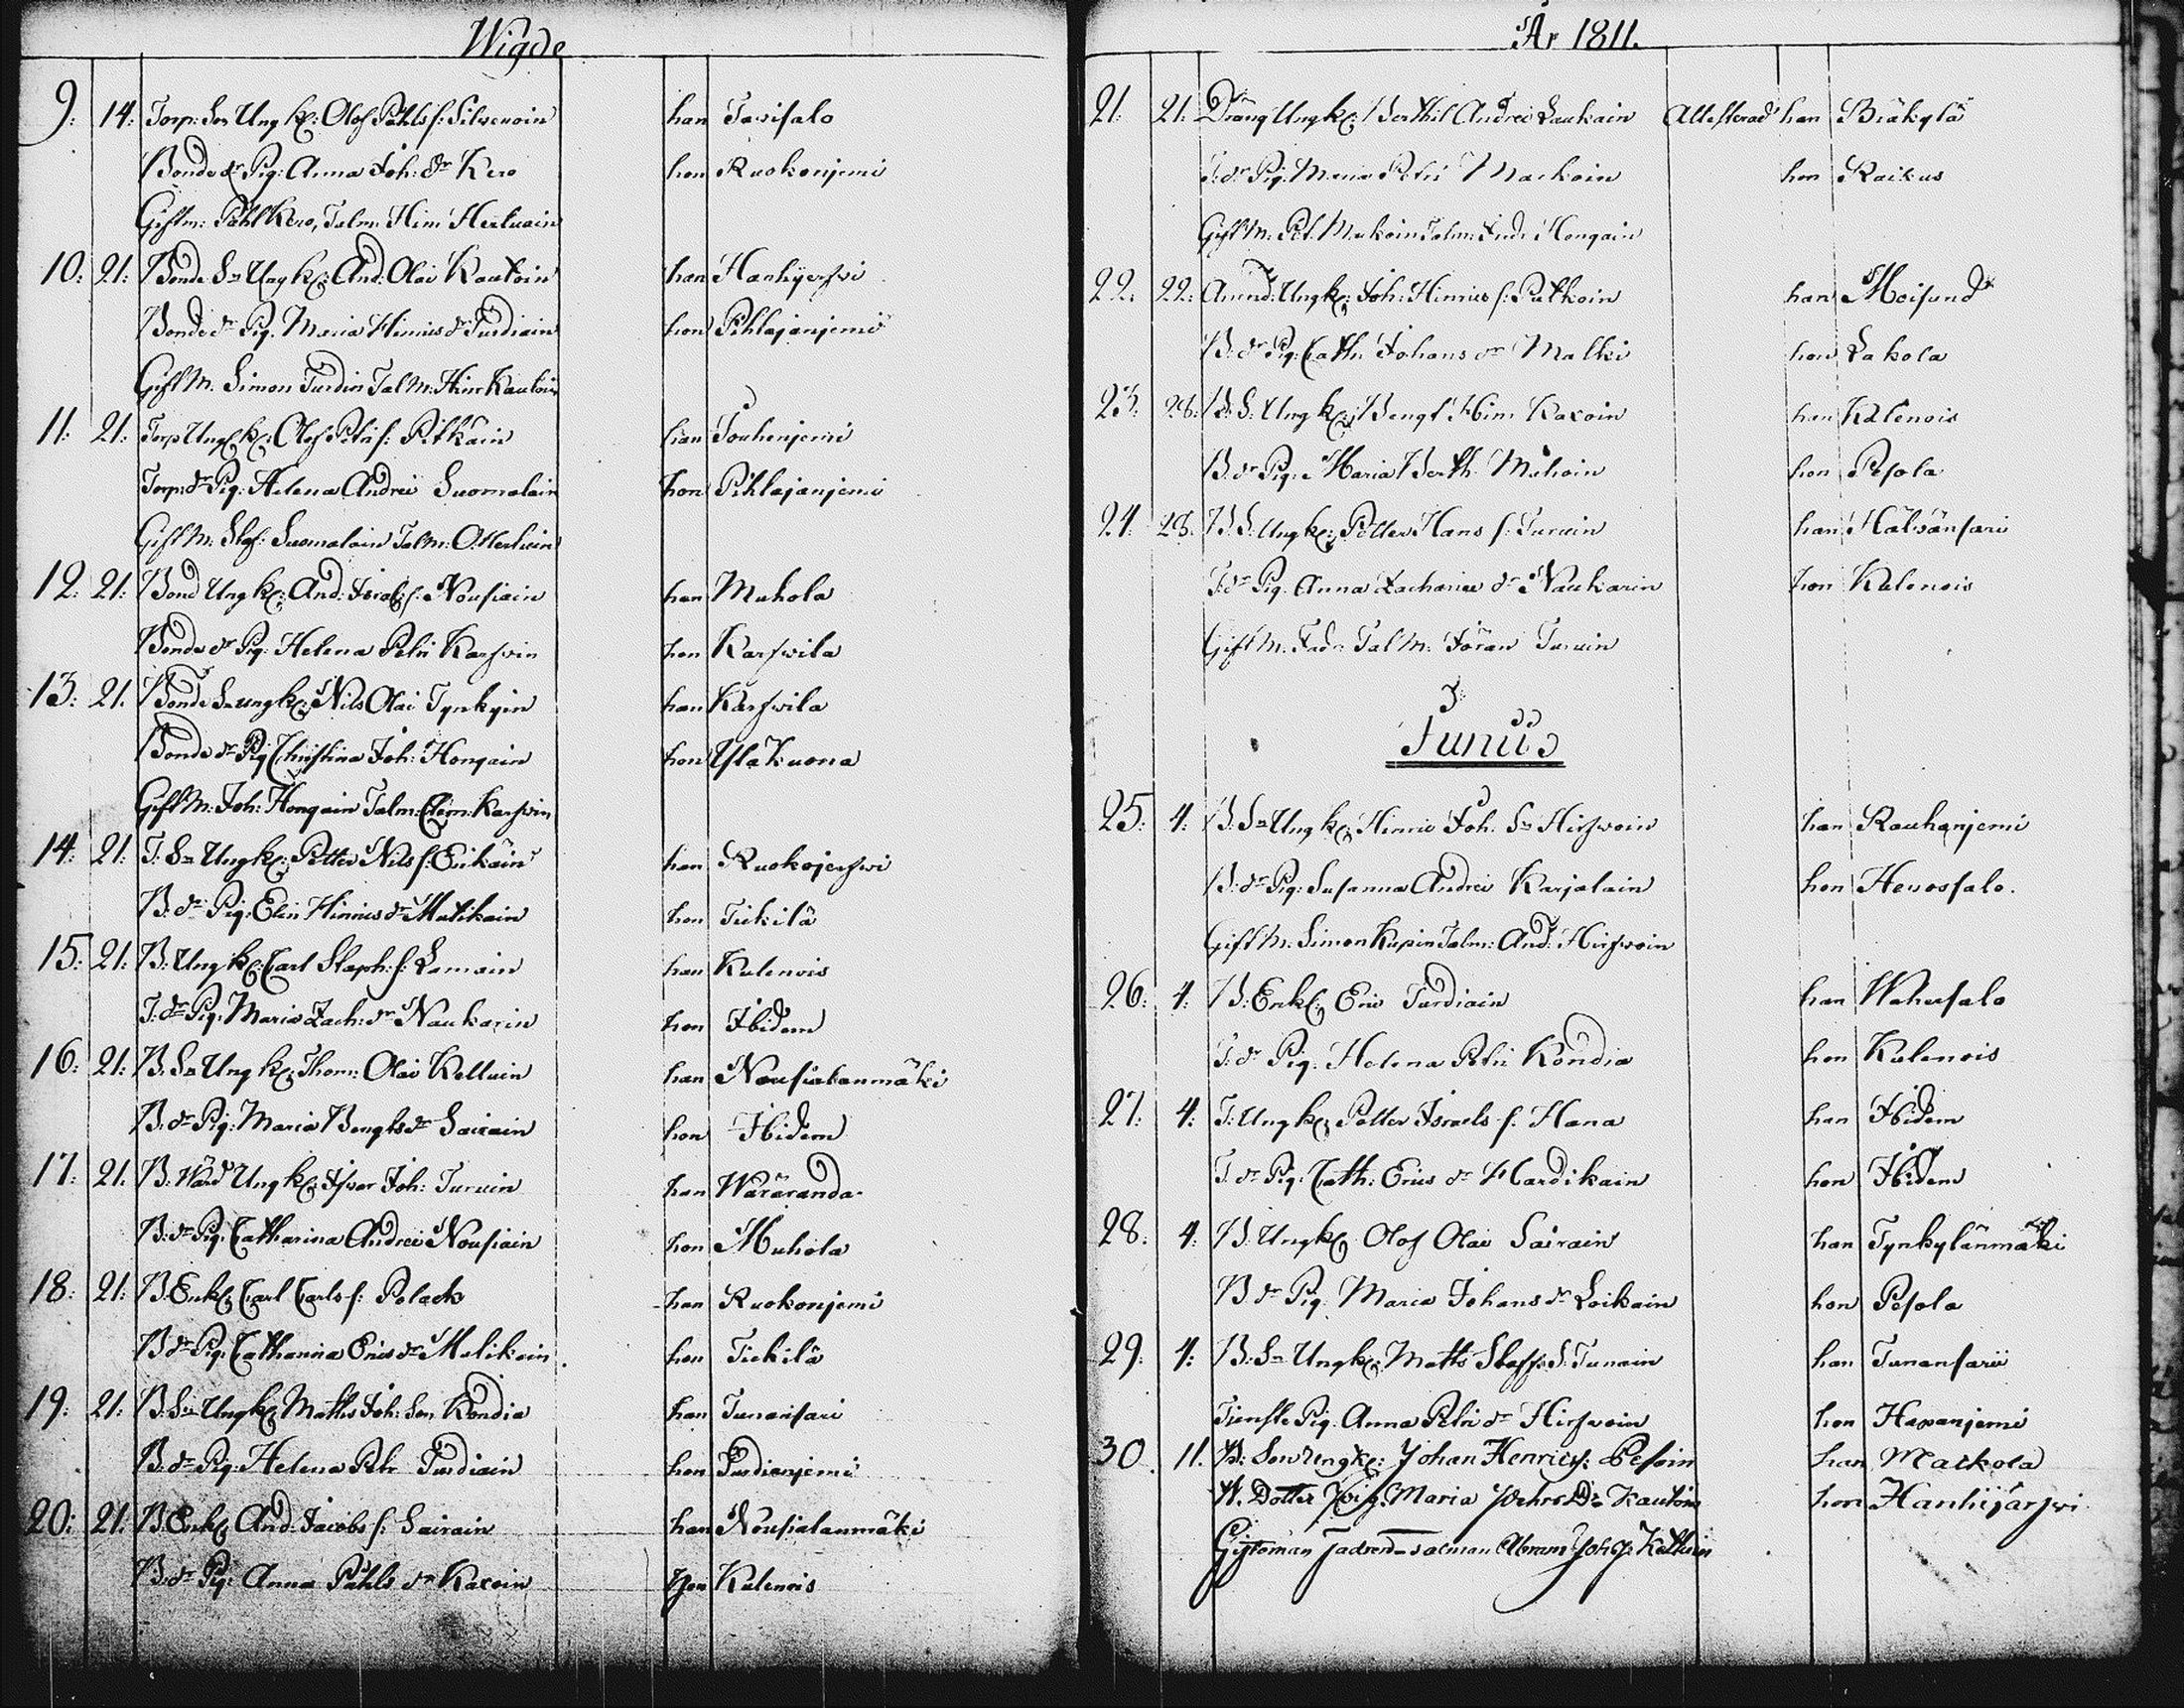 Wigde
9: 14: Torp: Son Ung k: Olof Påhls s: Silwenoin han Tavisalo
Bonde dr Pig: Anna Joh: dr Kero hon Ruokonjemi
Giftm: Påhl Kero, Talm: Hinr Herluain
10: 21: Bonde Sn Ung k: And: Olai Kautoin han Hanhijerfwi
Bonde dr Pig. Maria Hinrics dr Turdiain hon Pihlajanjemi
Gift M. Simon Turdin Tal M: Hinr Kautoin
11: 21: Torp Ung k: Olof Petri s: Pitkäin han Touhenjemi
Torp: dr Pig: Helena Andrei Suomalain hon Pihlajanjemi
Gift M. Staf: Suomalain Tal M: O. Herluin
12: 21: Bond Ung k: And: Israels s: Nousiain han Muhola
Bonde dr Pig: Helena Petri Karfwin hon Karfwila
13: 21. Bonde Sn ung k: Nils Olai Tynkyin han Karfwila
Bonde dr Pig Christina Joh: Hongain hon Ylä Kuona
Gift M: Joh: Hongain Talm: Clem: Karfwin
14: 21: T: Sn Ung k: Petter Nils s: Erikäin han Ruokojerfwi
B: dr Pig: Elin Hinrics dr Matikain hon Tiekilä
15: 21: B: Ung k: Carl Staph: s: Lamain han Kulenois
T: dr Pig: Maria Zach: dr Naukarin hon Ibidem
16: 21: B: Sn Ung k: Thom: Olai Kelluin han Nousialanmäki
B. dr Pig: Maria Bengts dr Sairain hon Ibidem
17: 21. B: Wärd Ung k: Ifwar Joh: Turuin han Wäräranda
B: dr Pig: Catharina Andrei Nousiain hon Muhola
18: 21: B Enk: Carl Carls s: Polack han Ruokonjemi
B dr Pig: Catharina Erics dr Malikain hon Tiekilä
19: 21: B: Sn Ung k: Matts Joh: Son Kondia han Tunansari
B: dr Pig: Helena Petr Turdiain hon Turdianjemi
20: 21: B Enk: And: Jacobs s: Sairain han Nousialanmäki
B: dr Pig: Anna Påhls dr Kaxoin hon Kulenois
År 1811.
21: 21: Dräng Ung k: Berthil Andrei Laukain Attesterad han Bräkylä
T: dr Pig: Maria Petri Mackoin hon Raikus
Gift M: Pet: Mackoin Talm: Andr Hongain
22: 22: Ung k: Joh: Hinrics s: Putkoin han Moisund
B: dr Pig: Cath: Johans dr Malki hon Lakola
23: 28: B: S: Ung k: Bengt Hinr Kaxoin han Kulenois
B. dr Pig: Maria Berth: Muhoin hon Pesola
24: 28. B S: Ung k: Petter Hans s: Turuin han Hälvänsari
T: dr Pig. Anna Zacharie dr Naukarin hon Kulenois
Gift M. Fadr Tal M: Jöran Turuin
Junius
25: 4: B. Sn Ung k: Hinric Joh: Sn Hirfwoin han Rauhanjemi
B: dr Pig: Susanna Andrei Karjalain hon Hevossalo.
Gift M. Simon Kupin Talm: And: Hirfwoin
26: 4: B: Enk: Eric Turdiain han Wahersalo
T: dr Pig. Helena Petri Kondia hon Kulenois
27: 4: T: Ung k: Petter Israels s: Hana han Ibidem
T: dr Pig: Cath: Erics dr Hardikain hon Ibidem
28: 4: B: Ung k: Olof Olai Sairain han Tynkylänmäki
B dr Pig: Maria Johans dr Loikain hon Pesola
29: 4: B: Sn Ung k: Matts Staff: S: Tunain han Tunansari
Tjenste Pig. Anna Petri dr Hirfwoin hon Haxanjemi
30. 11. B: Son Ungk: Johan Henrics: Pesoin han Mackola
B. Dotter Pig. Maria Dr Kautoin hon Hanhijärfwi
Giftoman fadren - Talman Abram Joh: Kelluin